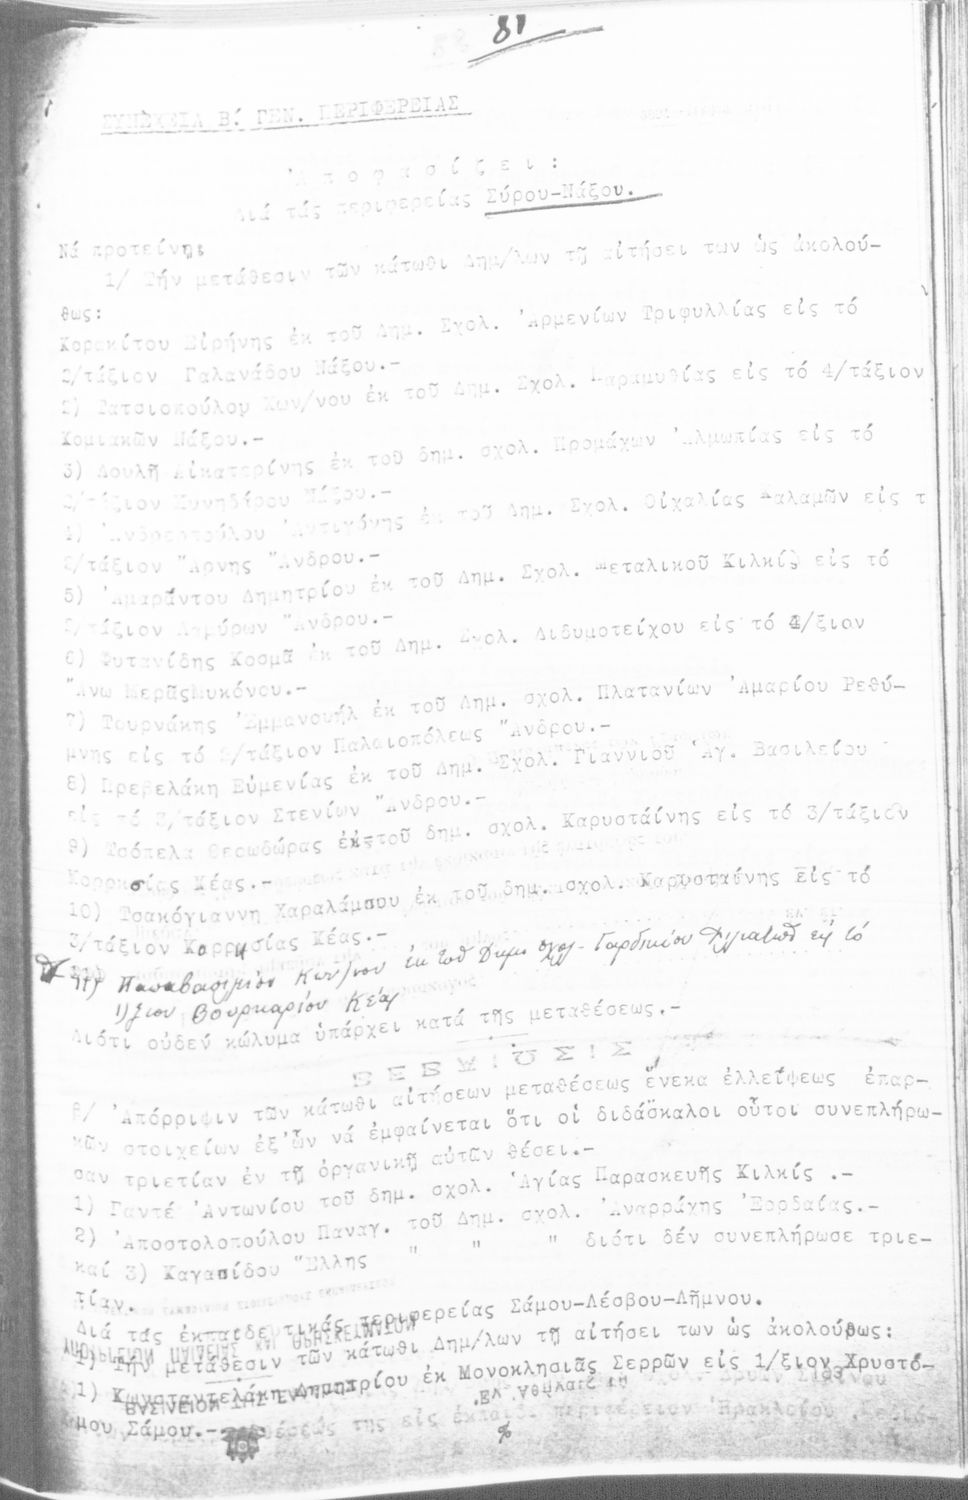 81
ΣΥΝΕΧΕΙΑ Β. ΓΕΝ. ΠΕΡΙΦΕΡΕΙΑΣ
Ἀποφασίζει:
Διά τάς περιφερείας Σύρου-Νάξου.
Νά προτείνῃ:
1/ Τήν μετάθεσιν τῶν κάτωθι Δημ/λων τῇ αἰτήσει των ὡς ἀκολού-
θως:
Κορακίτου Εἰρήνης ἐκ τοῦ Δημ. Σχολ. Ἀρμενίων Τριφυλλίας εἰς τό
2/τάξιον Γαλανάδου Νάξου.-
2) Τατσιοπούλου Κων/νου ἐκ τοῦ Δημ. Σχολ. Παραμυθίας εἰς τό 4/τάξιον
Κομιακῶν Νάξου.-
3) Δουλῆ Αἰκατερίνης ἐκ τοῦ δημ. σχολ. Προμάχων Ἀλμωπίας εἰς τό
2/τάξιον Κυνηδάρου Νάξου.-
4) Ἀνδρεοπούλου Ἀντιγόνης ἐκ τοῦ Δημ. Σχολ. Οἰχαλίας Καλαμῶν εἰς τ
2/τάξιον Ἄρνης Ἄνδρου.-
5) Ἀμαράντου Δημητρίου ἐκ τοῦ Δημ. Σχολ. Μεταλικοῦ Κιλκίς εἰς τό
2/τάξιον Λαμύρων Ἄνδρου.-
6) Φυτανίδης Κοσμᾶ ἐκ τοῦ Δημ. Σχολ. Διδυμοτείχου εἰς τό 4/ξιον
Ἄνω ΜερᾶςΜυκόνου.-
7) Τουρνάκης Ἐμμανουήλ ἐκ τοῦ Δημ. σχολ. Πλατανίων Ἀμαρίου Ρεθύ-
μνης εἰς τό 2/τάξιον Παλαιοπόλεως Ἄνδρου.-
8) Πρεβελάκη Εὐμενίας ἐκ τοῦ Δημ. Σχολ. Γιαννιοῦ Ἁγ. Βασιλείου
εἰς τό 2/τάξιον Στενίων Ἄνδρου.-
9) Τσόπελα Θεωδώρας ἐκ τοῦ δημ. σχολ. Καρυσταΐνης εἰς τό 3/τάξιον
Κορρησίας Κέας.-
10) Τσακόγιαννη Χαραλάμπου ἐκ τοῦ δημ. σχολ. Καρυσταΐνης Εἰς τό
3/τάξιον Κορρησίας Κέας.-
11) Παπαβασιλείου Κων/νου ἐκ τοῦ Δημ. σχολ. Γαρδικίου εἰς τό
1/ξιον Βουρκαρίου Κέας
Διότι οὐδέν κώλυμα ὑπάρχει κατά τῆς μεταθέσεως.-
β/ Ἀπόρριψιν τῶν κάτωθι αἰτήσεων μεταθέσεως ἕνεκα ἐλλείψεως ἐπαρ-
κῶν στοιχείων ἐξ ὧν νά ἐμφαίνεται ὅτι οἱ διδάσκαλοι οὗτοι συνεπλήρω-
σαν τριετίαν ἐν τῇ ὀργανικῇ αὐτῶν θέσει.-
1) Γαντέ Ἀντωνίου τοῦ δημ. σχολ. Ἁγίας Παρασκευῆς Κιλκίς .-
2) Ἀποστολοπούλου Παναγ. τοῦ Δημ. σχολ. Ἀναρράχης Ἐορδαίας.-
καί 3) Καγαπίδου Ἕλλης " " " διότι δέν συνεπλήρωσε τριε-
τίαν.
Διά τάς ἐκπαιδευτικάς περιφερείας Σάμου-Λέσβου-Λῆμνου.
1) Τήν μετάθεσιν τῶν κάτωθι Δημ/λων τῇ αἰτήσει των ὡς ἀκολούθως:
1) Κωνσταντελάκη Δημητρίου ἐκ Μονοκλησιᾶς Σερρῶν εἰς 1/ξιον Χρυστό-
μου Σάμου.-
%